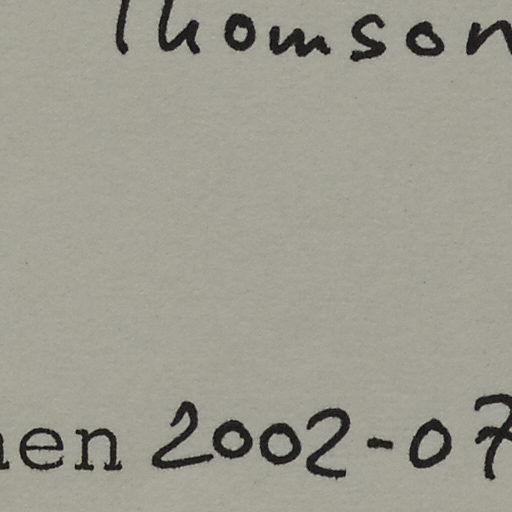 Thomson
nen 2002-07